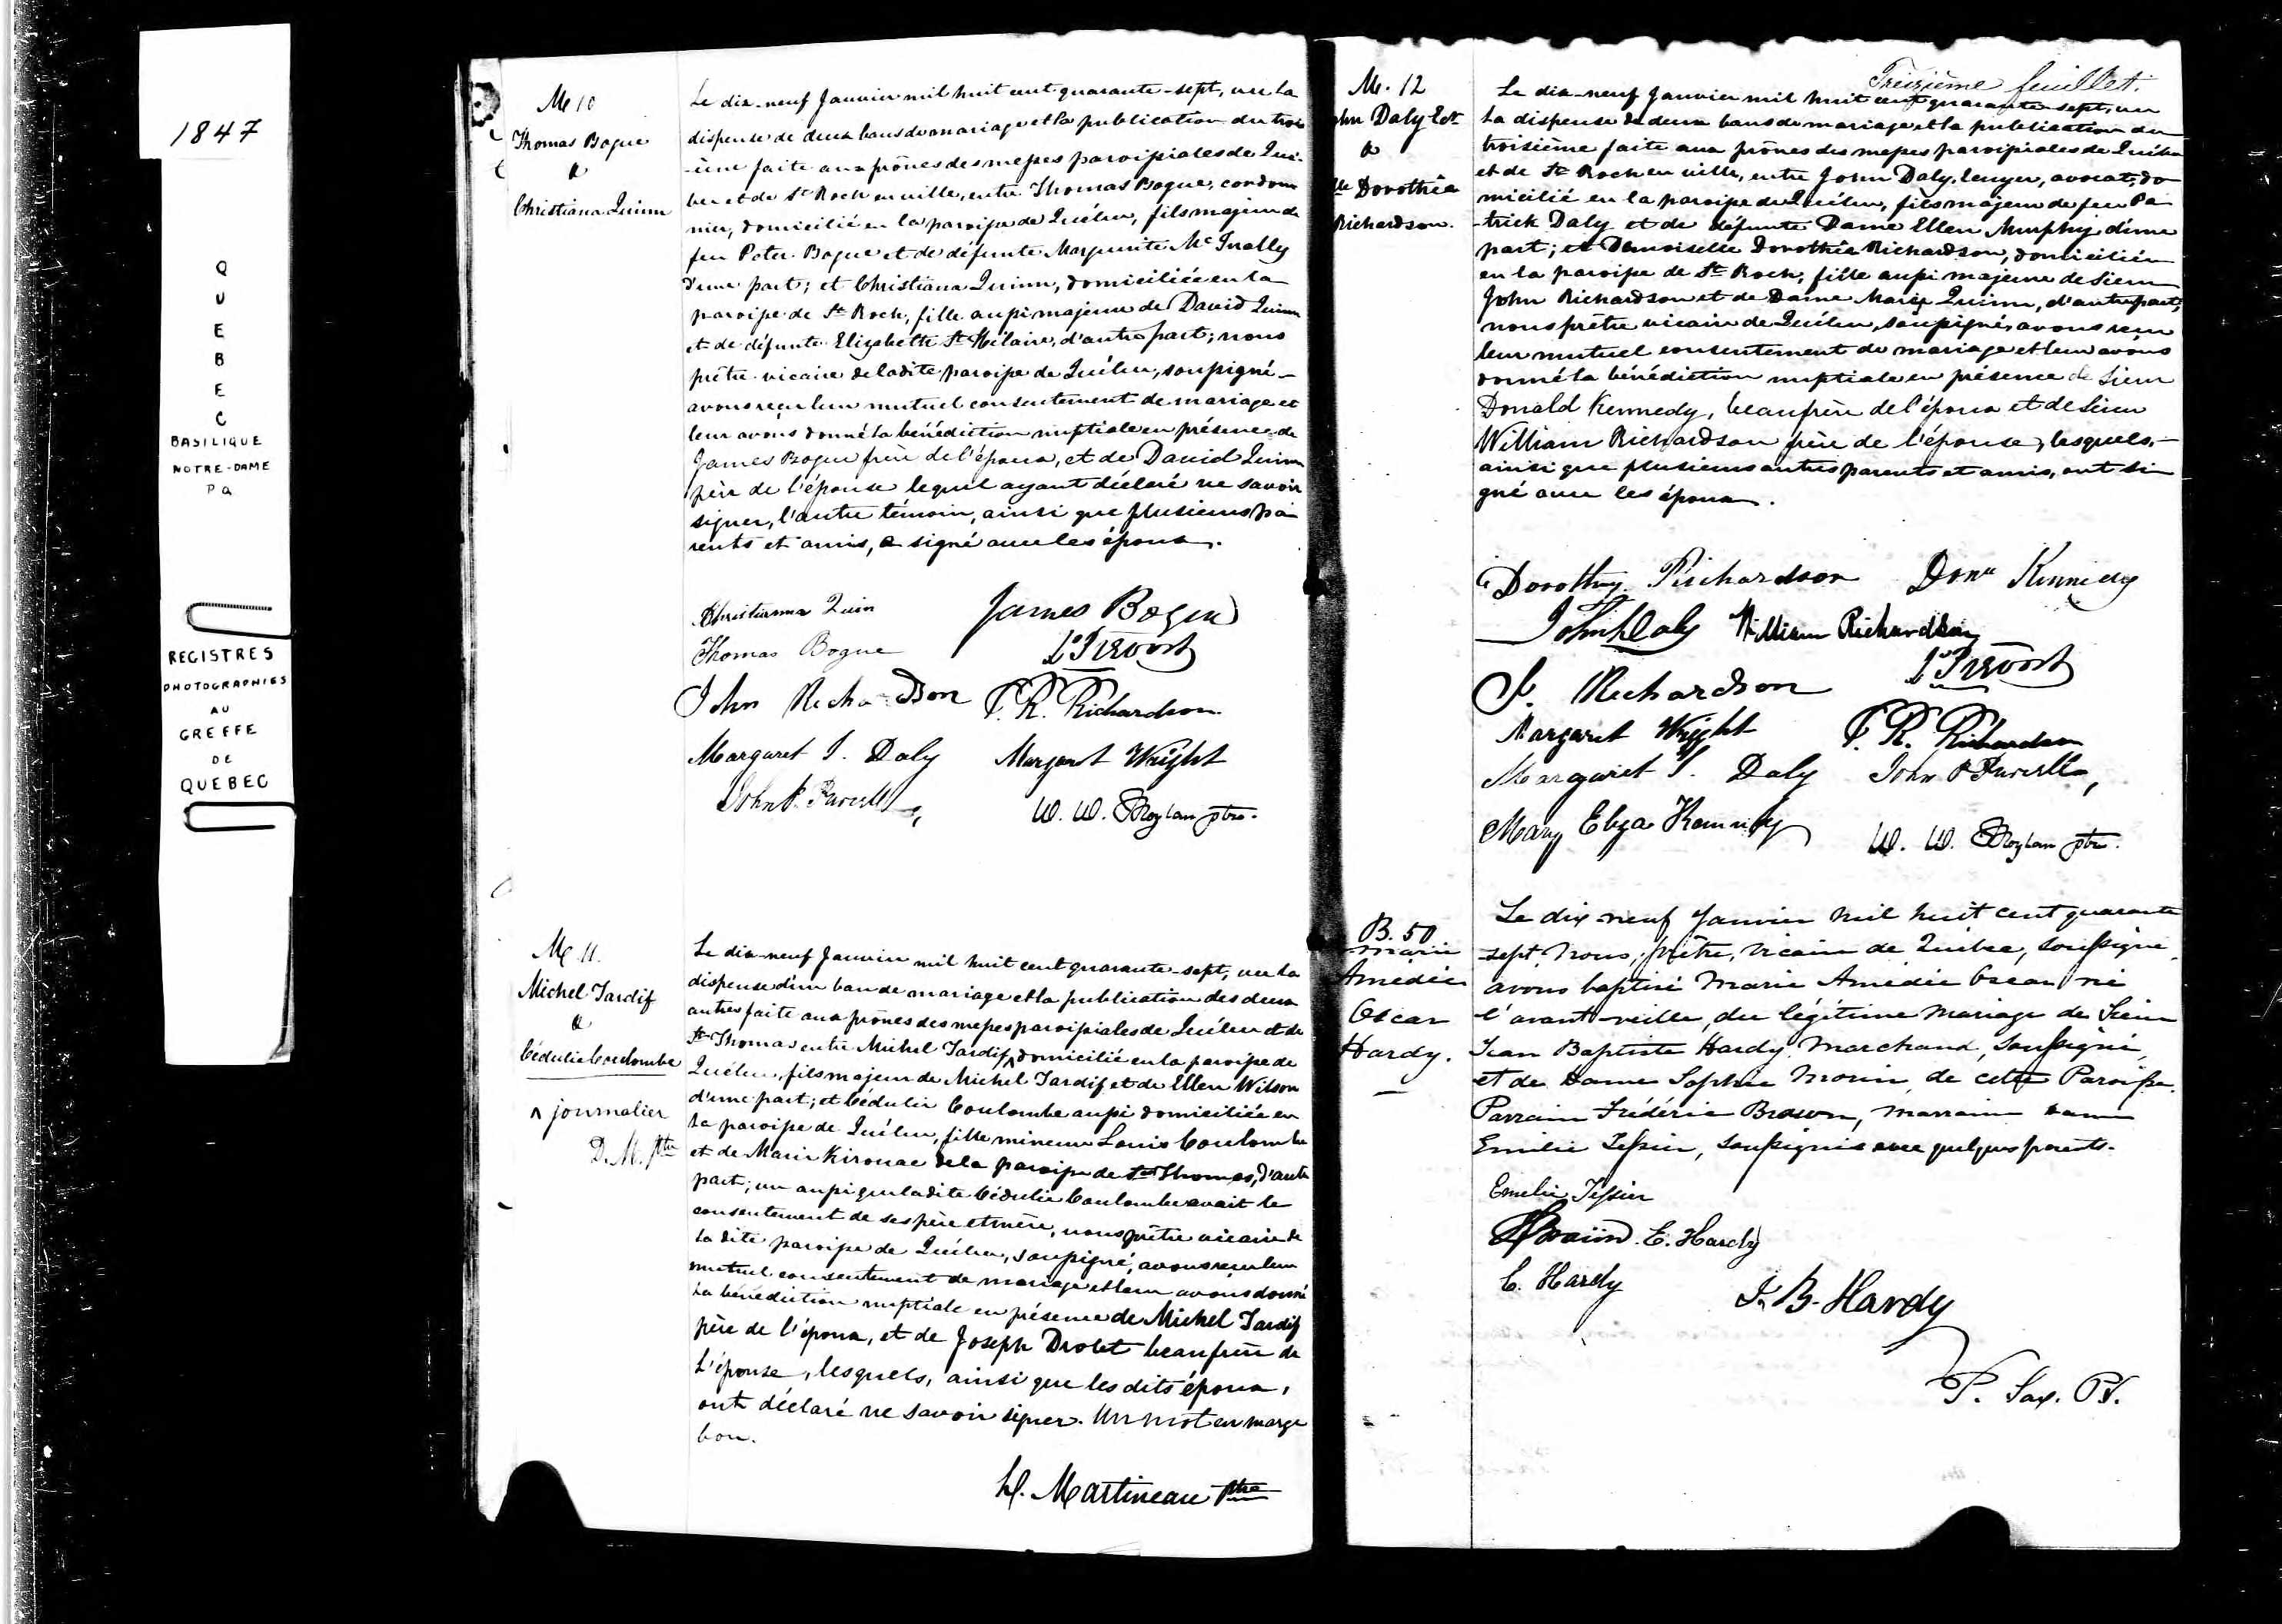 1847
QUEBEC
BASILIQUE
NOTRE-DAME
Pa
REGISTRES
PHOTOGRAPHIES
AU
GREFFE
DE
QUEBEC
M 10
Thomas Bogue
&
Christiana Quinn
Le dix-neuf Janvier mil huit cent quarante-sept, vu la
dispense de deux bans de mariage et la publication du trois
-ième faite aux prônes des messes paroissiales de Qué-
bec et de St Roch en ville, entre Thomas Bogue, cordon
nier, domicilié en la paroisse de Québec, fils majeur de
feu Peter Bogue et de défunte Marguerite Mc Inally
d'une part; et Christiana Quinn, domiciliée en la
paroisse de St Roch, fille aussi majeure de David Quinn
et de défunte Elizabeth St Hilaire, d'autre part; nous
prêtre vicaire de ladite paroisse de Québec, soussigné
avons reçu leur mutuel consentement de mariage et
leur avons donné la bénédiction nuptiale en présence de
James Bogue frère de l'époux, et de David Quinn
père de l'épouse lequel ayant déclaré ne savoir
signer, l'autre témoin, ainsi que plusieurs pa
rents et amis, a signé avec les époux.
Christianna Quin James Bogue
Thomas Bogue Ls Prevost
John Richardson P. R. Richardson
Margaret I. Daly Margaret Wright
John P. W. W. Moylan ptre.
M 11.
Michel Tardif
&
Cédulie Coulombe
^ journalier
D. M. Ptre
Le dix-neuf Janvier mil huit cent quarante-sept, vu la
dispense d'un ban de mariage et la publication des deux
autres faite aux prônes des messes paroissiales de Québec et de
St Thomas entre Michel Tardif ^ domicilié en la paroisse de
Québec, fils majeur de Michel Tardif et de Ellen Wilson
d'une part; et Cédulie Coulombe aussi domiciliée en
la paroisse de Québec, fille mineure Louis Coulombe
et de Marie Kirouac de la paroisse de St Thomas, d'autre
part; vu aussi que ladite Cédulie Coulombe avait le
consentement de ses père et mère, nous prêtre vicaire de
la dite paroisse de Québec, soussigné, avons reçu leur
mutuel consentement de mariage et leur avons donné
la bénédiction nuptiale en présence de Michel Tardif
père de l'époux, et de Joseph Drolet beaufrère de
l'épouse, lesquels, ainsi que les dits époux,
ont déclaré ne savoir signer. Un mot en marge
bon.
D. Martineau Ptre
Treizième feuillet.
M. 12
John Daly Ecr
&
Dlle Dorothée
Richardson.
Le dix-neuf Janvier mil huit cent quarante-sept, vu
la dispense de deux bans de mariage et la publication du
troisième faite aux prônes des messes paroissiales de Québec
et de St Roch en ville, entre John Daly, Ecuyer, avocat, do
micilié en la paroisse de Québec, fils majeur de feu Pa
-trick Daly et de défunte Dame Ellen Murphy d'une
part; et Demoiselle Dorothée Richardson, domiciliée
en la paroisse de St Roch, fille aussi majeure de Sieur
John Richardson et de Dame Marie Quinn, d'autre part;
nous prêtre vicaire de Québec, soussigné, avons reçu
leur mutuel consentement de mariage et leur avons
donné la bénédiction nuptiale en présence de Sieur
Donald Kennedy, beaufrère de l'époux et de Sieur
William Richardson frère de l'épouse, lesquels,
ainsi que plusieurs autres parents et amis, ont si
gné avec les époux.
Dorothy Richardson Dond Kennedy
John Daly William Richardson
J. Richardson Ls Prevost
Margaret Wright P. R. Richardson
Margaret I. Daly John P
Mary Eliza Kennedy W. W. Moylan ptre.
B. 50
Marie
Amédée
Oscar
Hardy.
Le dix-neuf Janvier mil huit cent quarante
sept, Nous, prêtre, vicaire de Québec, soussigné,
avons baptisé Marie Amédée Oscar, né
l'avant-veille, du légitime mariage de Sieur
Jean Baptiste Hardy, Marchand, soussigné,
et de Dame Sophie Morin, de cette Paroisse.
Parrain Frédéric Braun, marraine Dame
Emilie Tessier, soussignés avec quelques parents.
Emelie Tessier
F Braün E. Hardy
C. Hardy
J. B. Hardy
P. Sax. Pt.